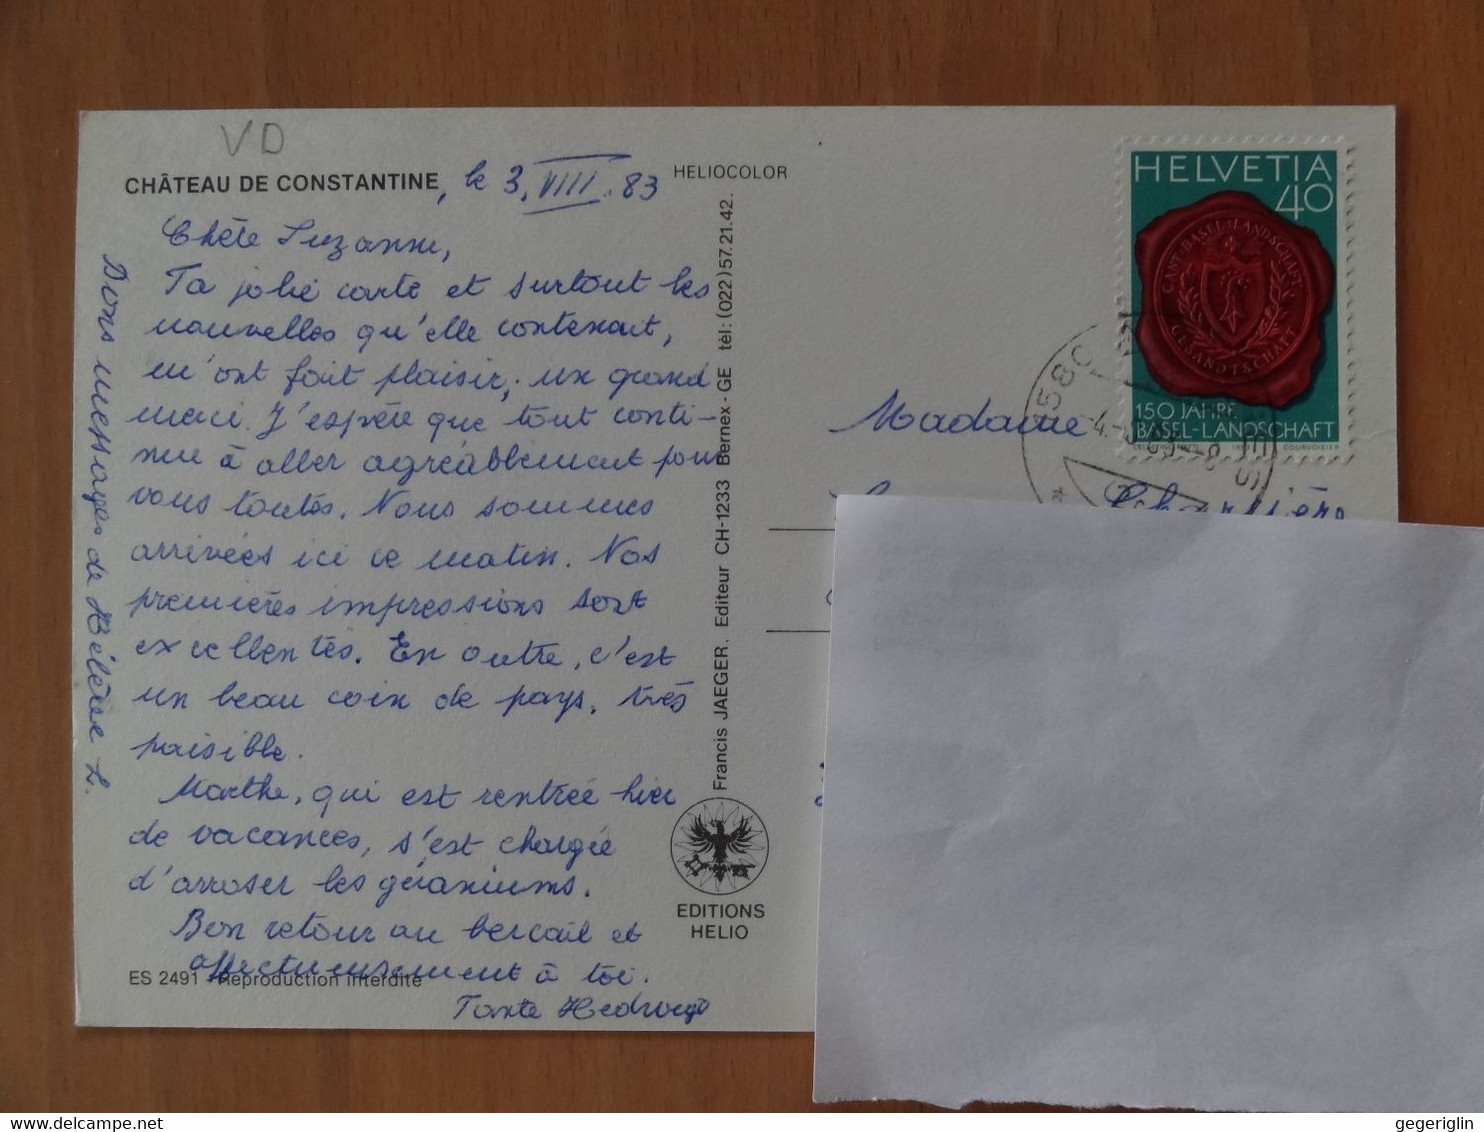 VD
CHÂTEAU DE CONSTANTINE, le 3.VIII.83
HELIOCOLOR
Chère Suzanne,
Ta jolie carte et surtout les
nouvelles qu'elle contenait,
m'ont fait plaisir; un grand
merci. J'espère que tout conti-
nue à aller agréablement pour
vous toutes. Nous sommes
arrivées ici ce matin. Nos
premières impressions sont
excellentes. En outre, c'est
un beau coin de pays, très
paisible.
Marthe, qui est rentrée hier
de vacances, s'est chargée
d'arroser les géraniums.
Bon retour au bercail et
affectueusement à toi.
Tante Hedwige
Bons messages de Hélène L.
ES 2491 Reproduction interdite
Francis JAEGER. Editeur CH-1233 Bernex - GE tél: (022) 57.21.42.
EDITIONS
HELIO
HELVETIA
40
CANT: BASEL: LANDSCHAFT
GESANDTSCHAFT
150 JAHRE
BASEL-LANDSCHAFT
COURVOISIER
1580
Madame
gegeriglin